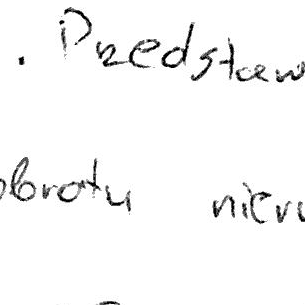 . Przedstaw
obrotu nieru